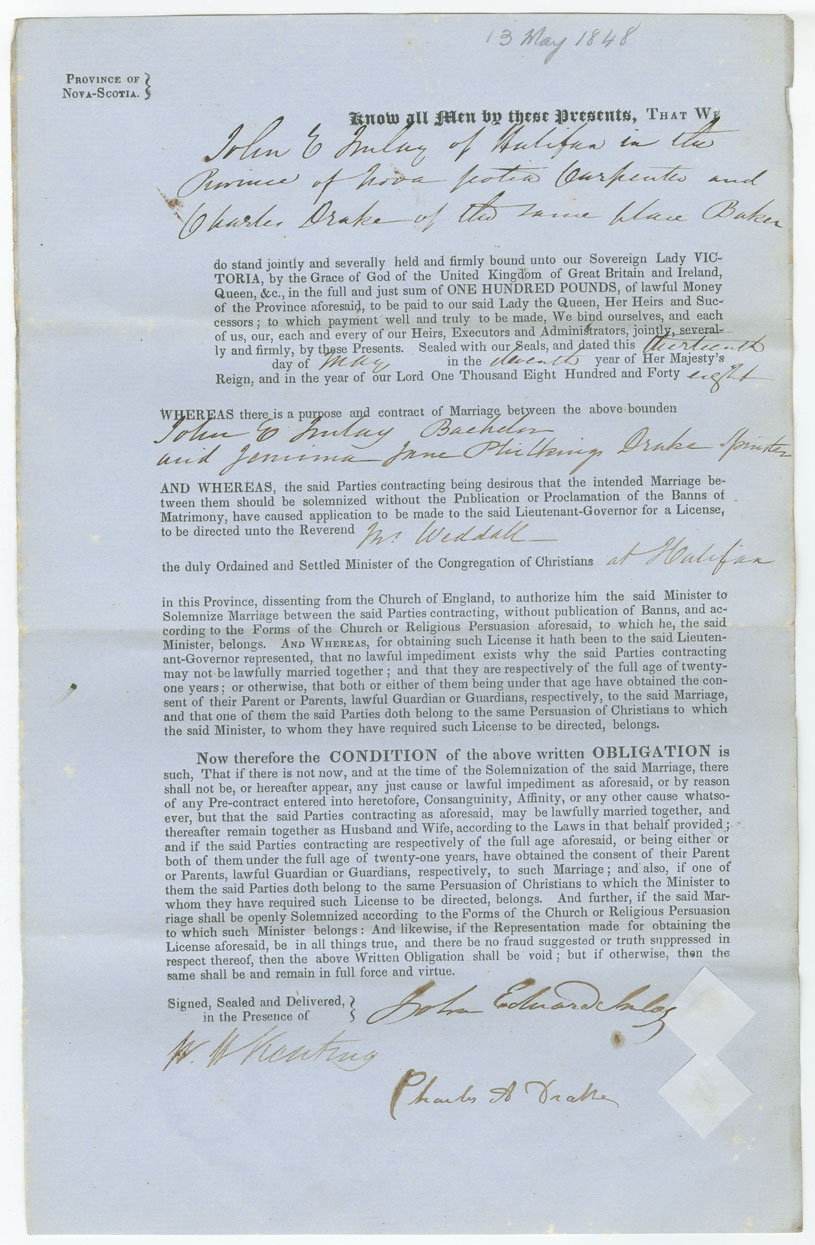 13 May 1848
PROVINCE OF
NOVA-SCOTIA.
Know all Men by these Presents, THAT WE
John E Imlay of Halifax in the
Province of Nova Scotia Carpenter and
Charles Drake of the same place Baker
do stand jointly and severally held and firmly bound unto our Sovereign Lady VIC-
TORIA, by the Grace of God of the United Kingdom of Great Britain and Ireland,
Queen, &c., in the full and just sum of ONE HUNDRED POUNDS, of lawful Money
of the Province aforesaid, to be paid to our said Lady the Queen, Her Heirs and Suc-
cessors; to which payment well and truly to be made, We bind ourselves, and each
of us, our, each and every of our Heirs, Executors and Administrators, jointly, several-
ly and firmly, by these Presents. Sealed with our Seals, and dated this thirteenth
day of May in the eleventh year of Her Majesty's
Reign, and in the year of our Lord One Thousand Eight Hundred and Forty eight
WHEREAS there is a purpose and contract of Marriage between the above bounden
John E Imlay Bachelor
and Jemima Jane Drake Spinster
AND WHEREAS, the said Parties contracting being desirous that the intended Marriage be-
tween them should be solemnized without the Publication or Proclamation of the Banns of
Matrimony, have caused application to be made to the said Lieutenant-Governor for a License,
to be directed unto the Reverend Mr Weddall
the duly Ordained and Settled Minister of the Congregation of Christians at Halifax
in this Province, dissenting from the Church of England, to authorize him the said Minister to
Solemnize Marriage between the said Parties contracting, without publication of Banns, and ac-
cording to the Forms of the Church or Religious Persuasion aforesaid, to which he, the said
Minister, belongs. AND WHEREAS, for obtaining such License it hath been to the said Lieuten-
ant-Governor represented, that no lawful impediment exists why the said Parties contracting
may not be lawfully married together; and that they are respectively of the full age of twenty-
one years; or otherwise, that both or either of them being under that age have obtained the con-
sent of their Parent or Parents, lawful Guardian or Guardians, respectively, to the said Marriage,
and that one of them the said Parties doth belong to the same Persuasion of Christians to which
the said Minister, to whom they have required such License to be directed, belongs.
Now therefore the CONDITION of the above written OBLIGATION is
such, That if there is not now, and at the time of the Solemnization of the said Marriage, there
shall not be, or hereafter appear, any just cause or lawful impediment as aforesaid, or by reason
of any Pre-contract entered into heretofore, Consanguinity, Affinity, or any other cause whatso-
ever, but that the said Parties contracting as aforesaid, may be lawfully married together, and
thereafter remain together as Husband and Wife, according to the Laws in that behalf provided;
and if the said Parties contracting are respectively of the full age aforesaid, or being either or
both of them under the full age of twenty-one years, have obtained the consent of their Parent
or Parents, lawful Guardian or Guardians, respectively, to such Marriage; and also, if one of
them the said Parties doth belong to the same Persuasion of Christians to which the Minister to
whom they have required such License to be directed, belongs. And further, if the said Mar-
riage shall be openly Solemnized according to the Forms of the Church or Religious Persuasion
to which such Minister belongs: And likewise, if the Representation made for obtaining the
License aforesaid, be in all things true, and there be no fraud suggested or truth suppressed in
respect thereof, then the above Written Obligation shall be void; but if otherwise, then the
same shall be and remain in full force and virtue.
Signed, Sealed and Delivered,
in the Presence of
John Edward Imlay
W. H Keating
Charles A Drake